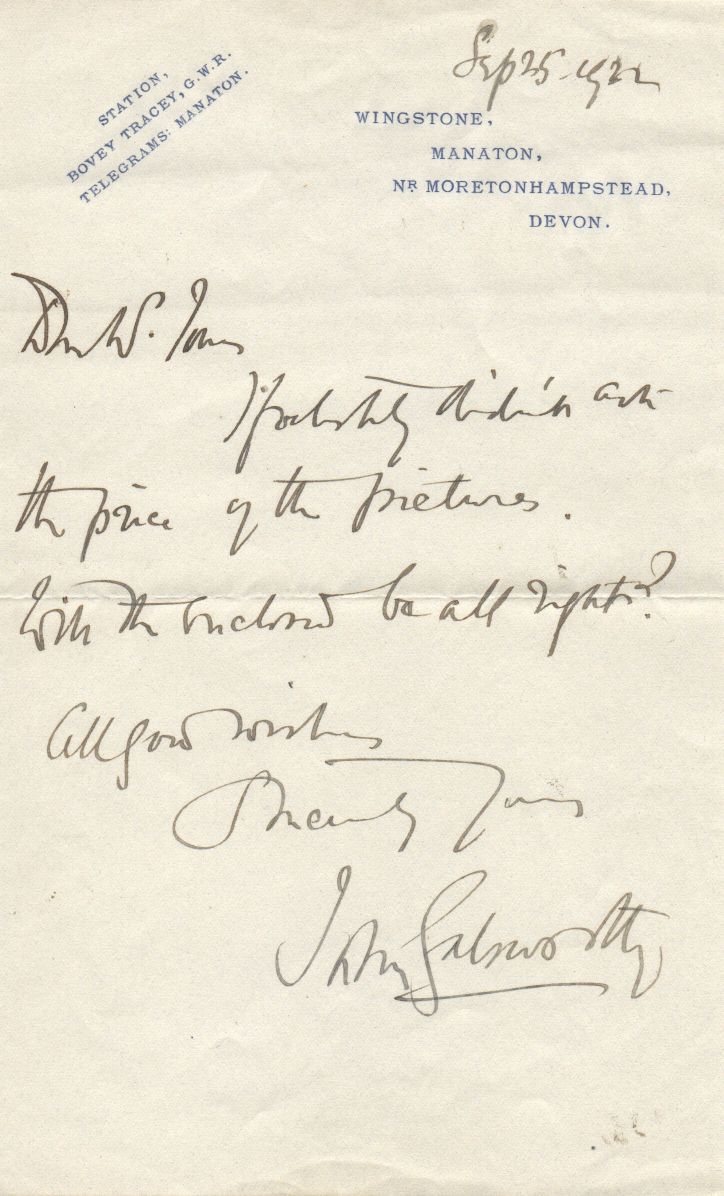 STATION,
BOVEY TRACEY, G.W.R.
TELEGRAMS: MANATON.
Sep 25. 1922
WINGSTONE,
MANATON,
NR MORETONHAMPSTEAD,
DEVON.
Dear Jones
I foolishly didn't ask
the price of the pictures.
Will the enclosed be all right?
All good wishes
Sincerely Yours
John Galsworthy